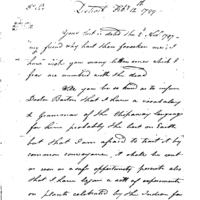 Detroit Feb 12th 1799
Your last is dated the 2d Novr 1797
my friend why hast thou forsaken me, I
have wrote you many letters since which I
fear are numbered with the dead
Will you be so kind as to inform
Doctor Barton that I have a vocabulary
& Grammar of the Chipaway language
for him probably the best on Earth
but that I am afraid to trust it by
common conveyance, it shall be sent
as soon as a safe opportunity presents also
that I have begun a sett of experiments
on plants celebrated by the Indian for